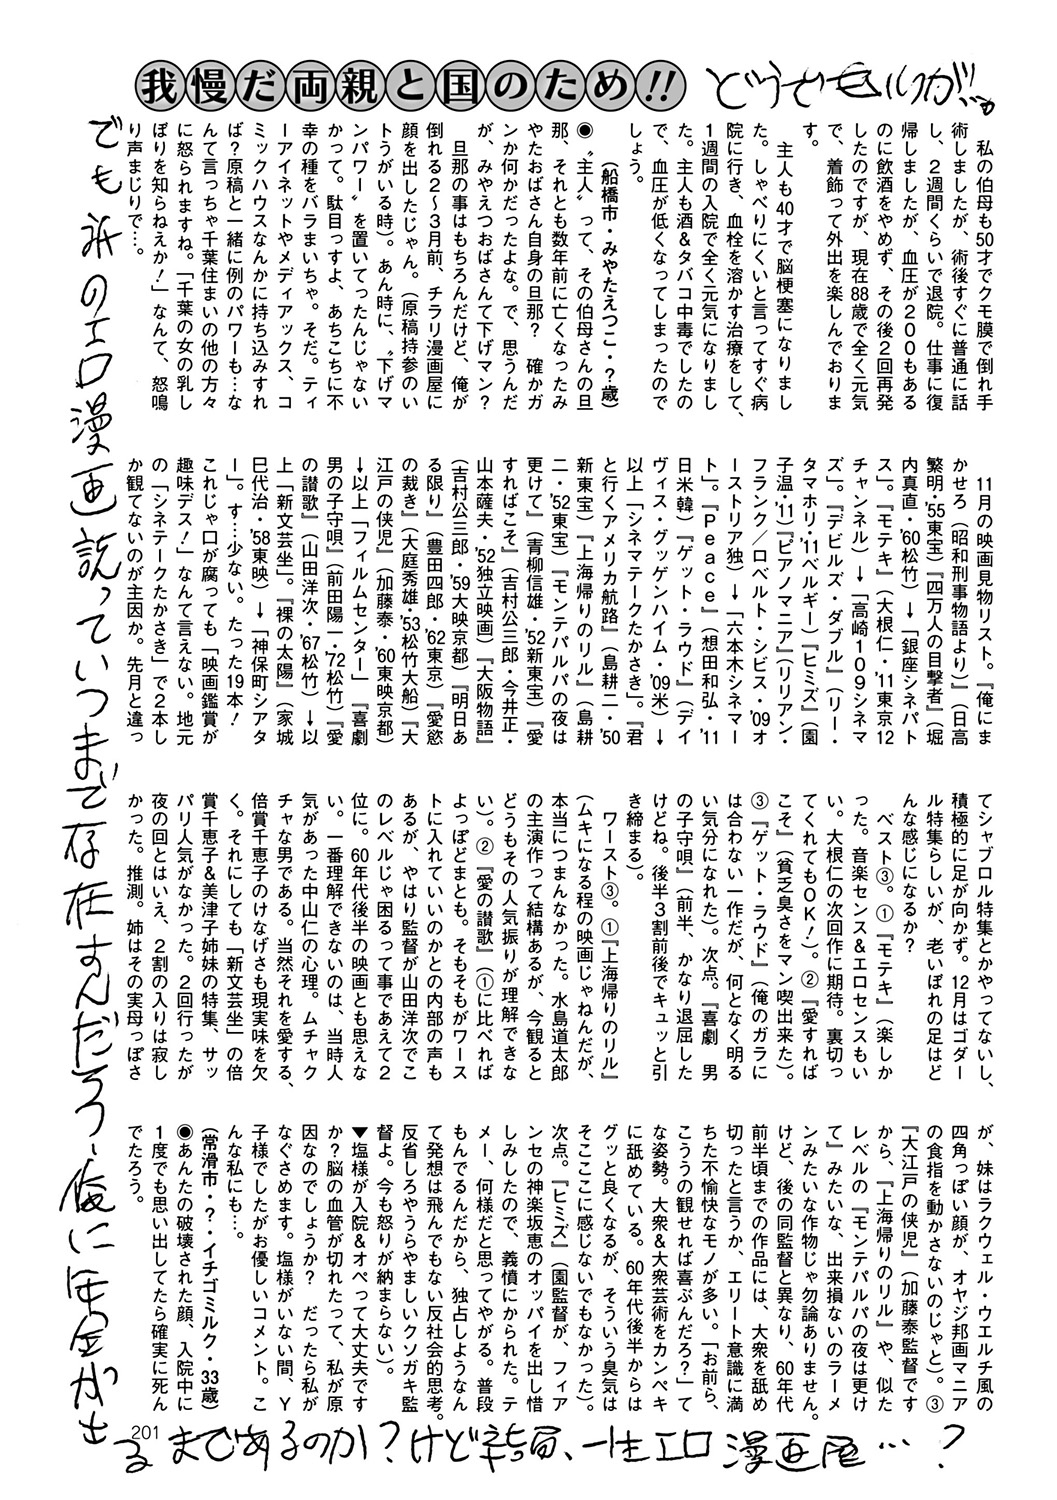 我慢だ両親と国のため!!
どうせモルガ!!
私の伯母も50才でクモ膜で倒れ手
術しましたが、術後すぐに普通に話
し、2週間くらいで退院。仕事に復
帰しましたが、血圧が200もある
のに飲酒をやめず、その後2回再発
したのですが、現在88歳で全く元気
で、着飾って外出を楽しんでおりま
す。
主人も40才で脳梗塞になりまし
た。しゃべりにくいと言ってすぐ病
院に行き、血栓を溶かす治療をして、
1週間の入院で全く元気になりまし
た。主人も酒&タバコ中毒でしたの
で、血圧が低くなってしまったので
しょう。
(船橋市・みやたえつこ・?歳)
◉〝主人〟って、その伯母さんの旦
那、それとも数年前に亡くなったみ
やたおばさん自身の旦那? 確かガ
ンか何かだったよな。で、思うんだ
が、みやえつおばさんて下げマン?
旦那の事はもちろんだけど、俺が
倒れる2〜3月前、チラリ漫画屋に
顔を出したじゃん。(原稿持参のい
トうがいる時)。あん時に、〝下げマ
ンパワー〟を置いてったんじゃない
かって。駄目っすよ、あちこちに不
幸の種をバラまいちゃ。そだ。ティ
ーアイネットやメディアックス、コ
ミックハウスなんかに持ち込みすれ
ば?原稿と一緒に例のパワーも…な
んて言っちゃ千葉住まいの他の方々
に怒られますね。「千葉の女の乳し
ぼりを知らねえか!」なんて、怒鳴
り声まじりで…。
11月の映画見物リスト。『俺にま
かせろ(昭和刑事物語より)』(日高
繁明・'55東宝)『四万人の目撃者』(堀
内真直・'60松竹)→「銀座シネパト
ス」。『モテキ』(大根仁・'11東京12
チャンネル)→「高崎109シネマ
ズ」。『デビルズ・ダブル』(リー・
タマホリ・'11ベルギー)『ヒミズ』(園
子温・'11)『ピアノマニア』(リリアン・
フランク/ロベルト・シビス・'09オ
ーストリア独)→「六本木シネマー
ト」。『Peace』(想田和弘・'11
日米韓)『ゲット・ラウド』(デイ
ヴィス・グッゲンハイム・'09米)→
以上「シネマテークたかさき」。『君
と行くアメリカ航路』(島耕二・'50
新東宝)『上海帰りのリル』(島耕
二・'52東宝)『モンテパルパの夜は
更けて』(青柳信雄・'52新東宝)『愛
すればこそ』(吉村公三郎・今井正・
山本薩夫・'52独立映画)『大阪物語』
(吉村公三郎・'59大映京都)『明日あ
る限り』(豊田四郎・'62東京)『愛慾
の裁き』(大庭秀雄・'53松竹大船)『大
江戸の侠児』(加藤泰・'60東映京都)
→以上「フィルムセンター」『喜劇
男の子守唄』(前田陽一・'72松竹)『愛
の讃歌』(山田洋次・'67松竹)→以
上「新文芸坐」。『裸の太陽』(家城
巳代治・'58東映)→「神保町シアタ
ー」。す…少ない。たった19本!
これじゃ口が腐っても「映画鑑賞が
趣味デス!」なんて言えない。地元
の「シネテークたかさき」で2本し
か観てないのが主因か。先月と違っ
てシャブロル特集とかやってないし、
積極的に足が向かず。12月はゴダー
ル特集らしいが、老いぼれの足はど
んな感じになるか?
ベスト③。①『モテキ』(楽しか
った。音楽センス&エロセンスもい
い。大根仁の次回作に期待。裏切っ
てくれてもOK!)。②『愛すれば
こそ』(貧乏臭さをマン喫出来た)。
③『ゲット・ラウド』(俺のガラに
は合わない一作だが、何となく明る
い気分になれた)。次点。『喜劇 男
の子守唄』(前半、かなり退屈した
けどね。後半3割前後でキュッと引
き締まる)。
ワースト③。①『上海帰りのリル』
(ムキになる程の映画じゃねんだが、
本当につまんなかった。水島道太郎
の主演作って結構あるが、今観ると
どうもその人気振りが理解できな
い)。②『愛の讃歌』(①に比べれば
よっぽどまとも。そもそもがワース
トに入れていいのかとの内部の声も
あるが、やはり監督が山田洋次でこ
のレベルじゃ困るって事であえて2
位に。60年代後半の映画とも思えな
い。一番理解できないのは、当時人
気があった中山仁の心理。ムチャク
チャな男である。当然それを愛する、
倍賞千恵子のけなげさも現実味を欠
く。それにしても「新文芸坐」の倍
賞千恵子&美津子姉妹の特集、サッ
パリ人気がなかった。2回行ったが
夜の回とはいえ、2割の入りは寂し
かった。推測。姉はその実母っぽさ
が、妹はラクウェル・ウエルチ風の
四角っぽい顔が、オヤジ邦画マニア
の食指を動かさないのじゃと)。③
『大江戸の侠児』(加藤泰監督です
から、『上海帰りのリル』や、似た
レベルの『モンテパルパの夜は更け
て』みたいな、出来損ないのラーメ
ンみたいな作物じゃ勿論ありません。
けど、後の同監督と異なり、60年代
前半頃までの作品には、大衆を舐め
切ったと言うか、エリート意識に満
ちた不愉快なモノが多い。「お前ら、
こううの観せれば喜ぶんだろ?」て
な姿勢。大衆&大衆芸術をカンペキ
に舐めている。60年代後半からは
グッと良くなるが、そういう臭気は
そこここに感じないでもなかった)。
次点。『ヒミズ』(園監督が、フィア
ンセの神楽坂恵のオッパイを出し惜
しみしたので、義憤にかられた。テ
メー、何様だと思ってやがる。普段
もんでるんだから、独占しようなん
て発想は飛んでもない反社会的思考。
反省しろやうらやましいクソガキ監
督よ。今も怒りが納まらない)。
▼塩様が入院&オペって大丈夫です
か?脳の血管が切れたって、私が原
因なのでしょうか? だったら私が
なぐさめます。塩様がいない間、Y
子様でしたがお優しいコメント。こ
んな私にも…。
(常滑市・?・イチゴミルク・33歳)
◉あんたの破壊された顔、入院中に
1度でも思い出してたら確実に死ん
でたろう。
でも氷のエロ漫画説っていつまで存在すんだろう。俺に年金が出
るまであるのか?けど結局、一生エロ漫画屋…?
201